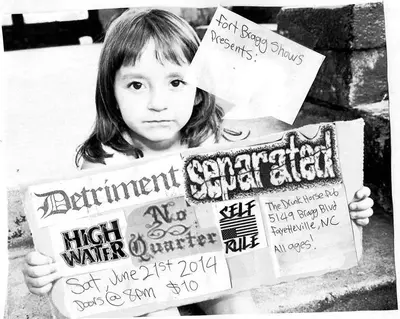 fort Bragg Shows
Presents:
Detriment
separated
HIGH
WATER
No
Quarter
SELF
RULE
The Drunk Horse Pub
5149 Bragg Blvd
Fayetteville, NC
All ages!
Sat, June 21st 2014
Doors @ 8pm $10